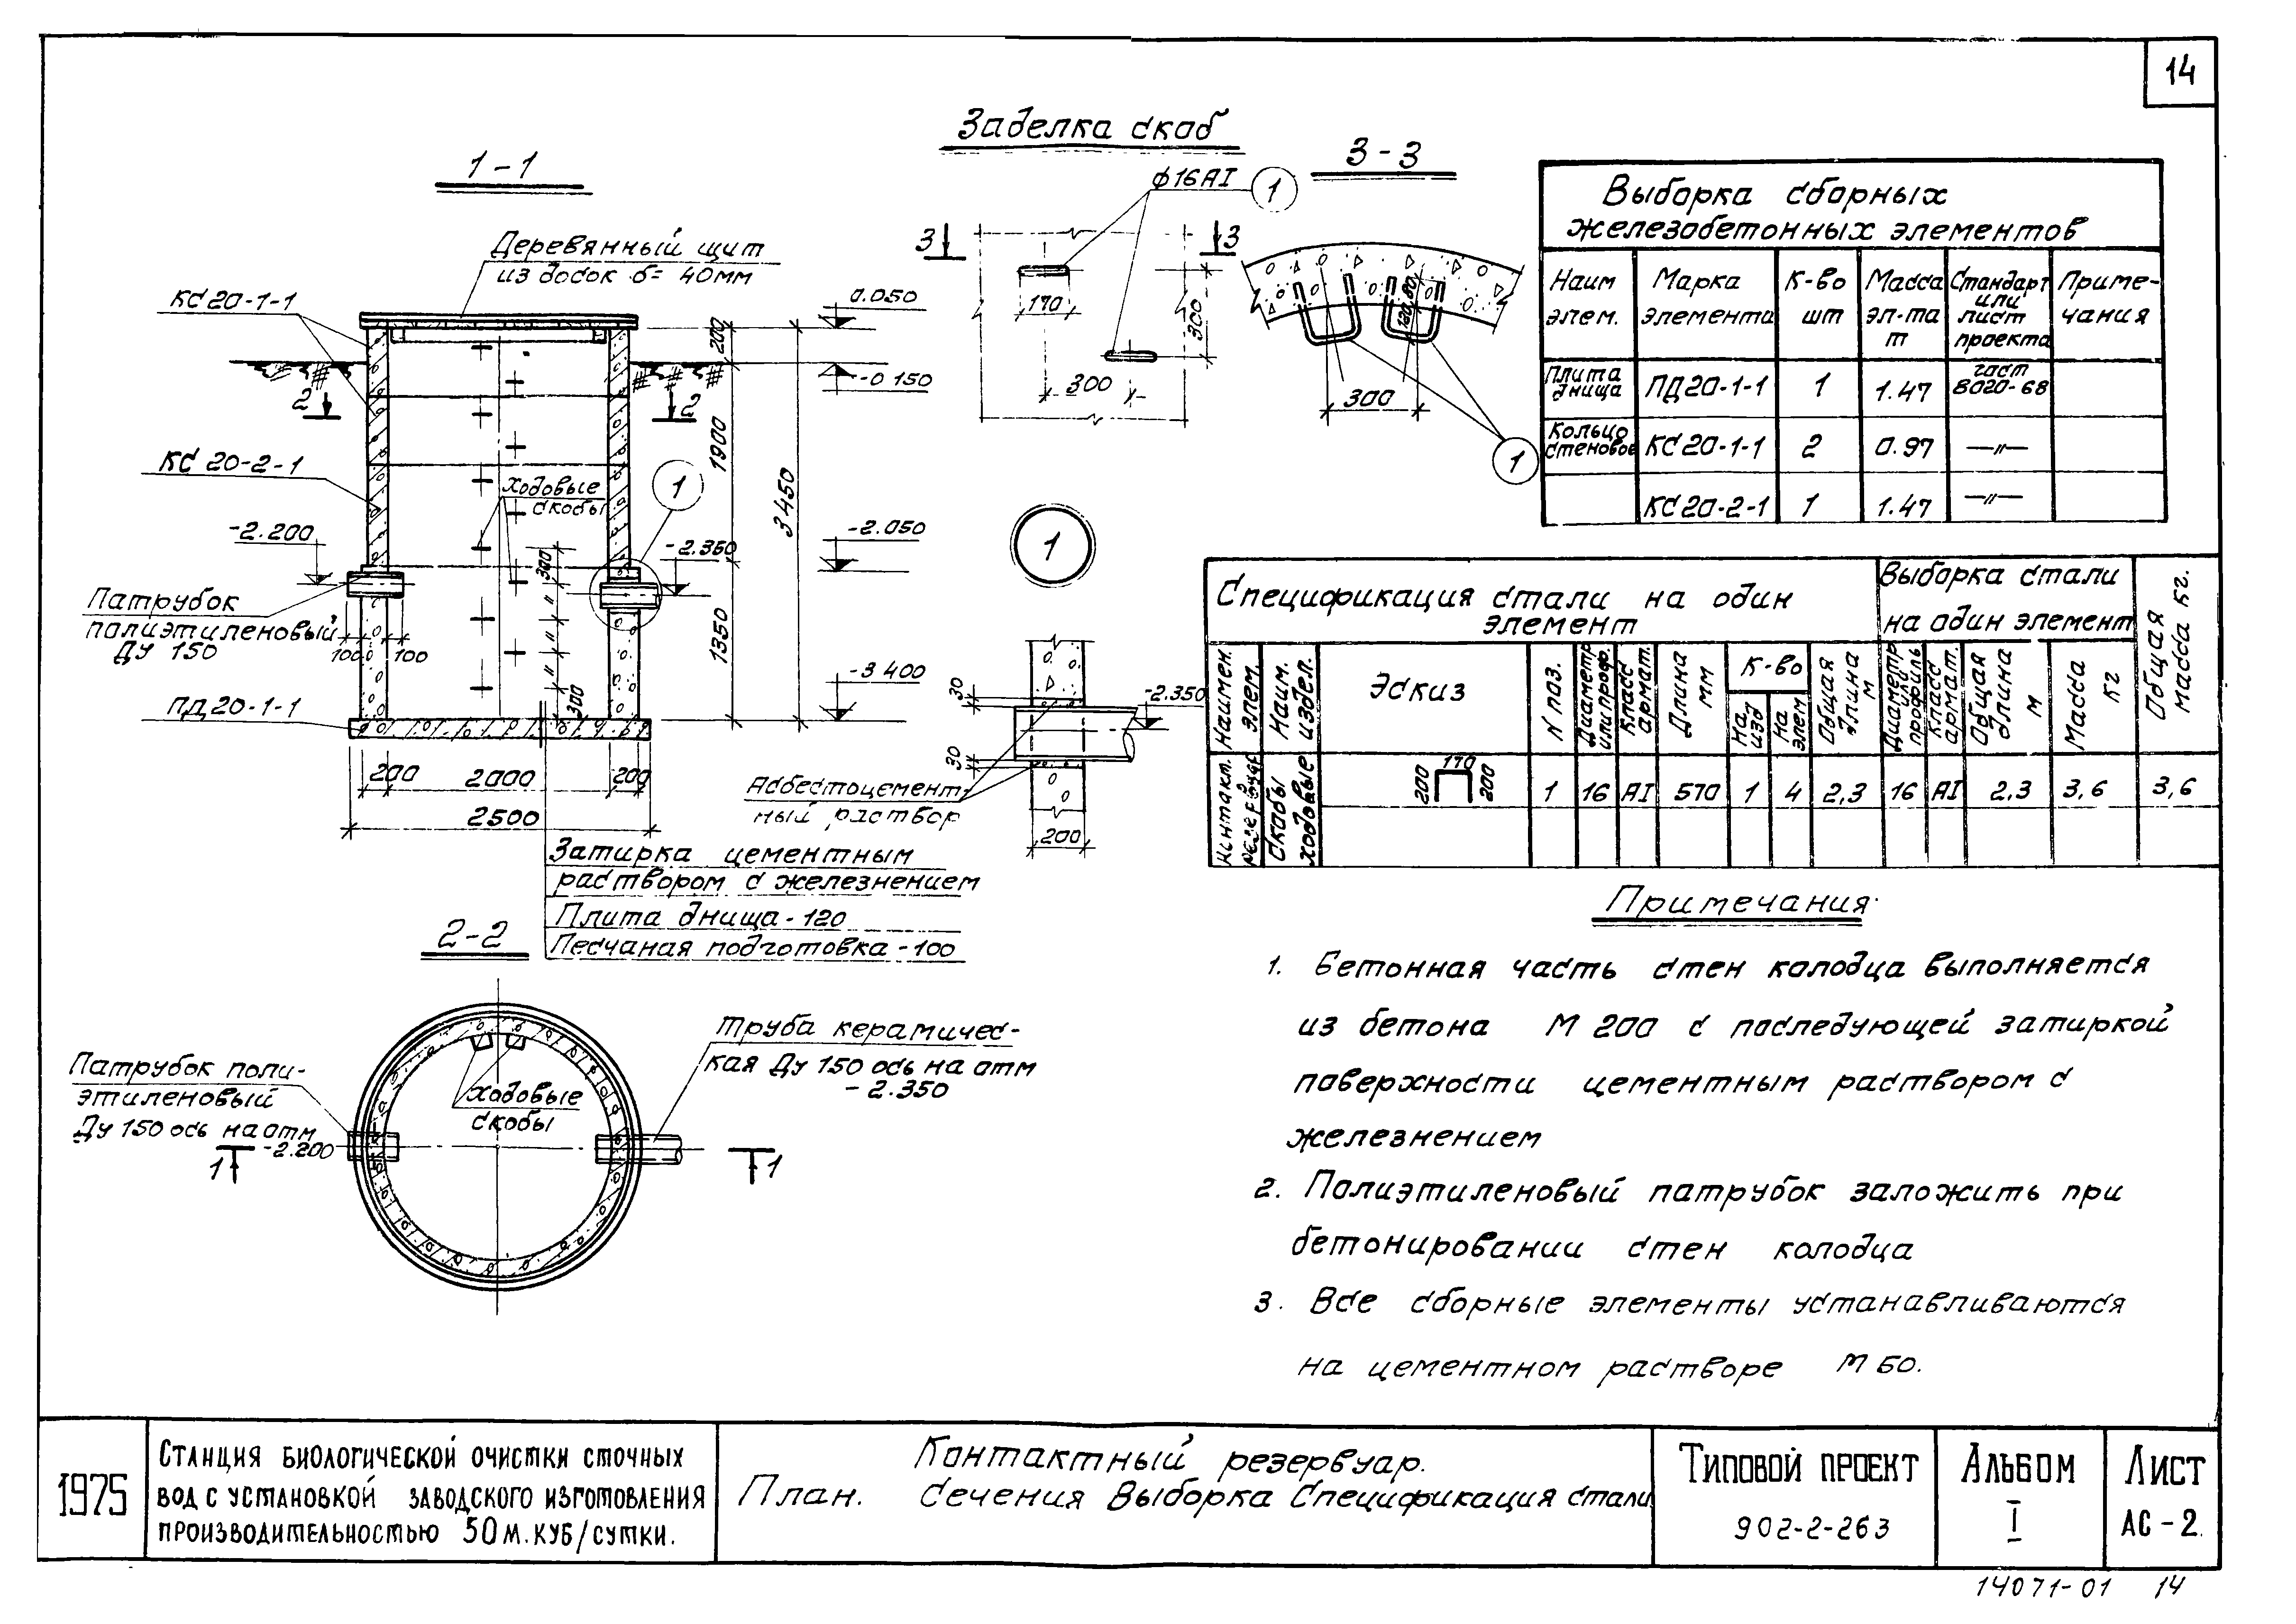 14
1-1
Деревянный щит
из досок δ= 40мм
КС 20-1-1
КС 20-2-1
0.050
-0 150
200
1900
3450
1350
2
2
ходовые
скобы
1
-2.200
-2.350
-2.050
-3 400
Патрубок
полиэтиленовый
Ду 150
100
100
300
"
"
"
300
ПД 20-1-1
200
2000
200
2500
Затирка цементным
раствором с железнением
Плита днища - 120
Песчаная подготовка - 100
Заделка скоб
ф16АI
1
3
3
170
300
300
3-3
120
80
300
1
1
30
30
-2.350
Асбестоцемент-
ный раствор
200
2-2
Патрубок поли-
этиленовый
Ду 150 ось на отм
-2.200
Ходовые
скобы
Труба керамичес-
кая Ду 150 ось на отм
-2.350
1
1
Выборка сборных
железобетонных элементов
Наим элем.
Марка элемента
К-во шт
Масса эл-та т
Стандарт или лист проекта
Приме-чания
Плита днища ПД 20-1-1 1 1.47 гост 8020-68
Кольцо стеновое КС 20-1-1 2 0.97 —"—
КС 20-2-1 1 1.47 —"—
Спецификация стали на один
элемент
Выборка стали
на один элемент
Общая масса кг.
Наимен. элем.
Наим. издел.
Эскиз
N поз.
Диаметр или проф.
Класс армат.
Длина мм
К-во
на изд
на элем
Общая длина м
Диаметр профиль
Класс армат.
Общая длина м
Масса кг
Контакт. резервуар
Скобы ходовые
200 170 200
1 16 АI 570 1 4 2,3 16 АI 2.3 3,6 3,6
Примечания
1. Бетонная часть стен колодца выполняется
из бетона М 200 с последующей затиркой
поверхности цементным раствором с
железнением
2. Полиэтиленовый патрубок заложить при
бетонировании стен колодца
3. Все сборные элементы устанавливаются
на цементном растворе М 50.
1975
Станция биологической очистки сточных
вод с установкой заводского изготовления
производительностью 50 м.куб/сутки.
Контактный резервуар.
План. Сечения Выборка Спецификация стали
Типовой проект
902-2-263
Альбом
I
Лист
АС-2.
14071-01 14